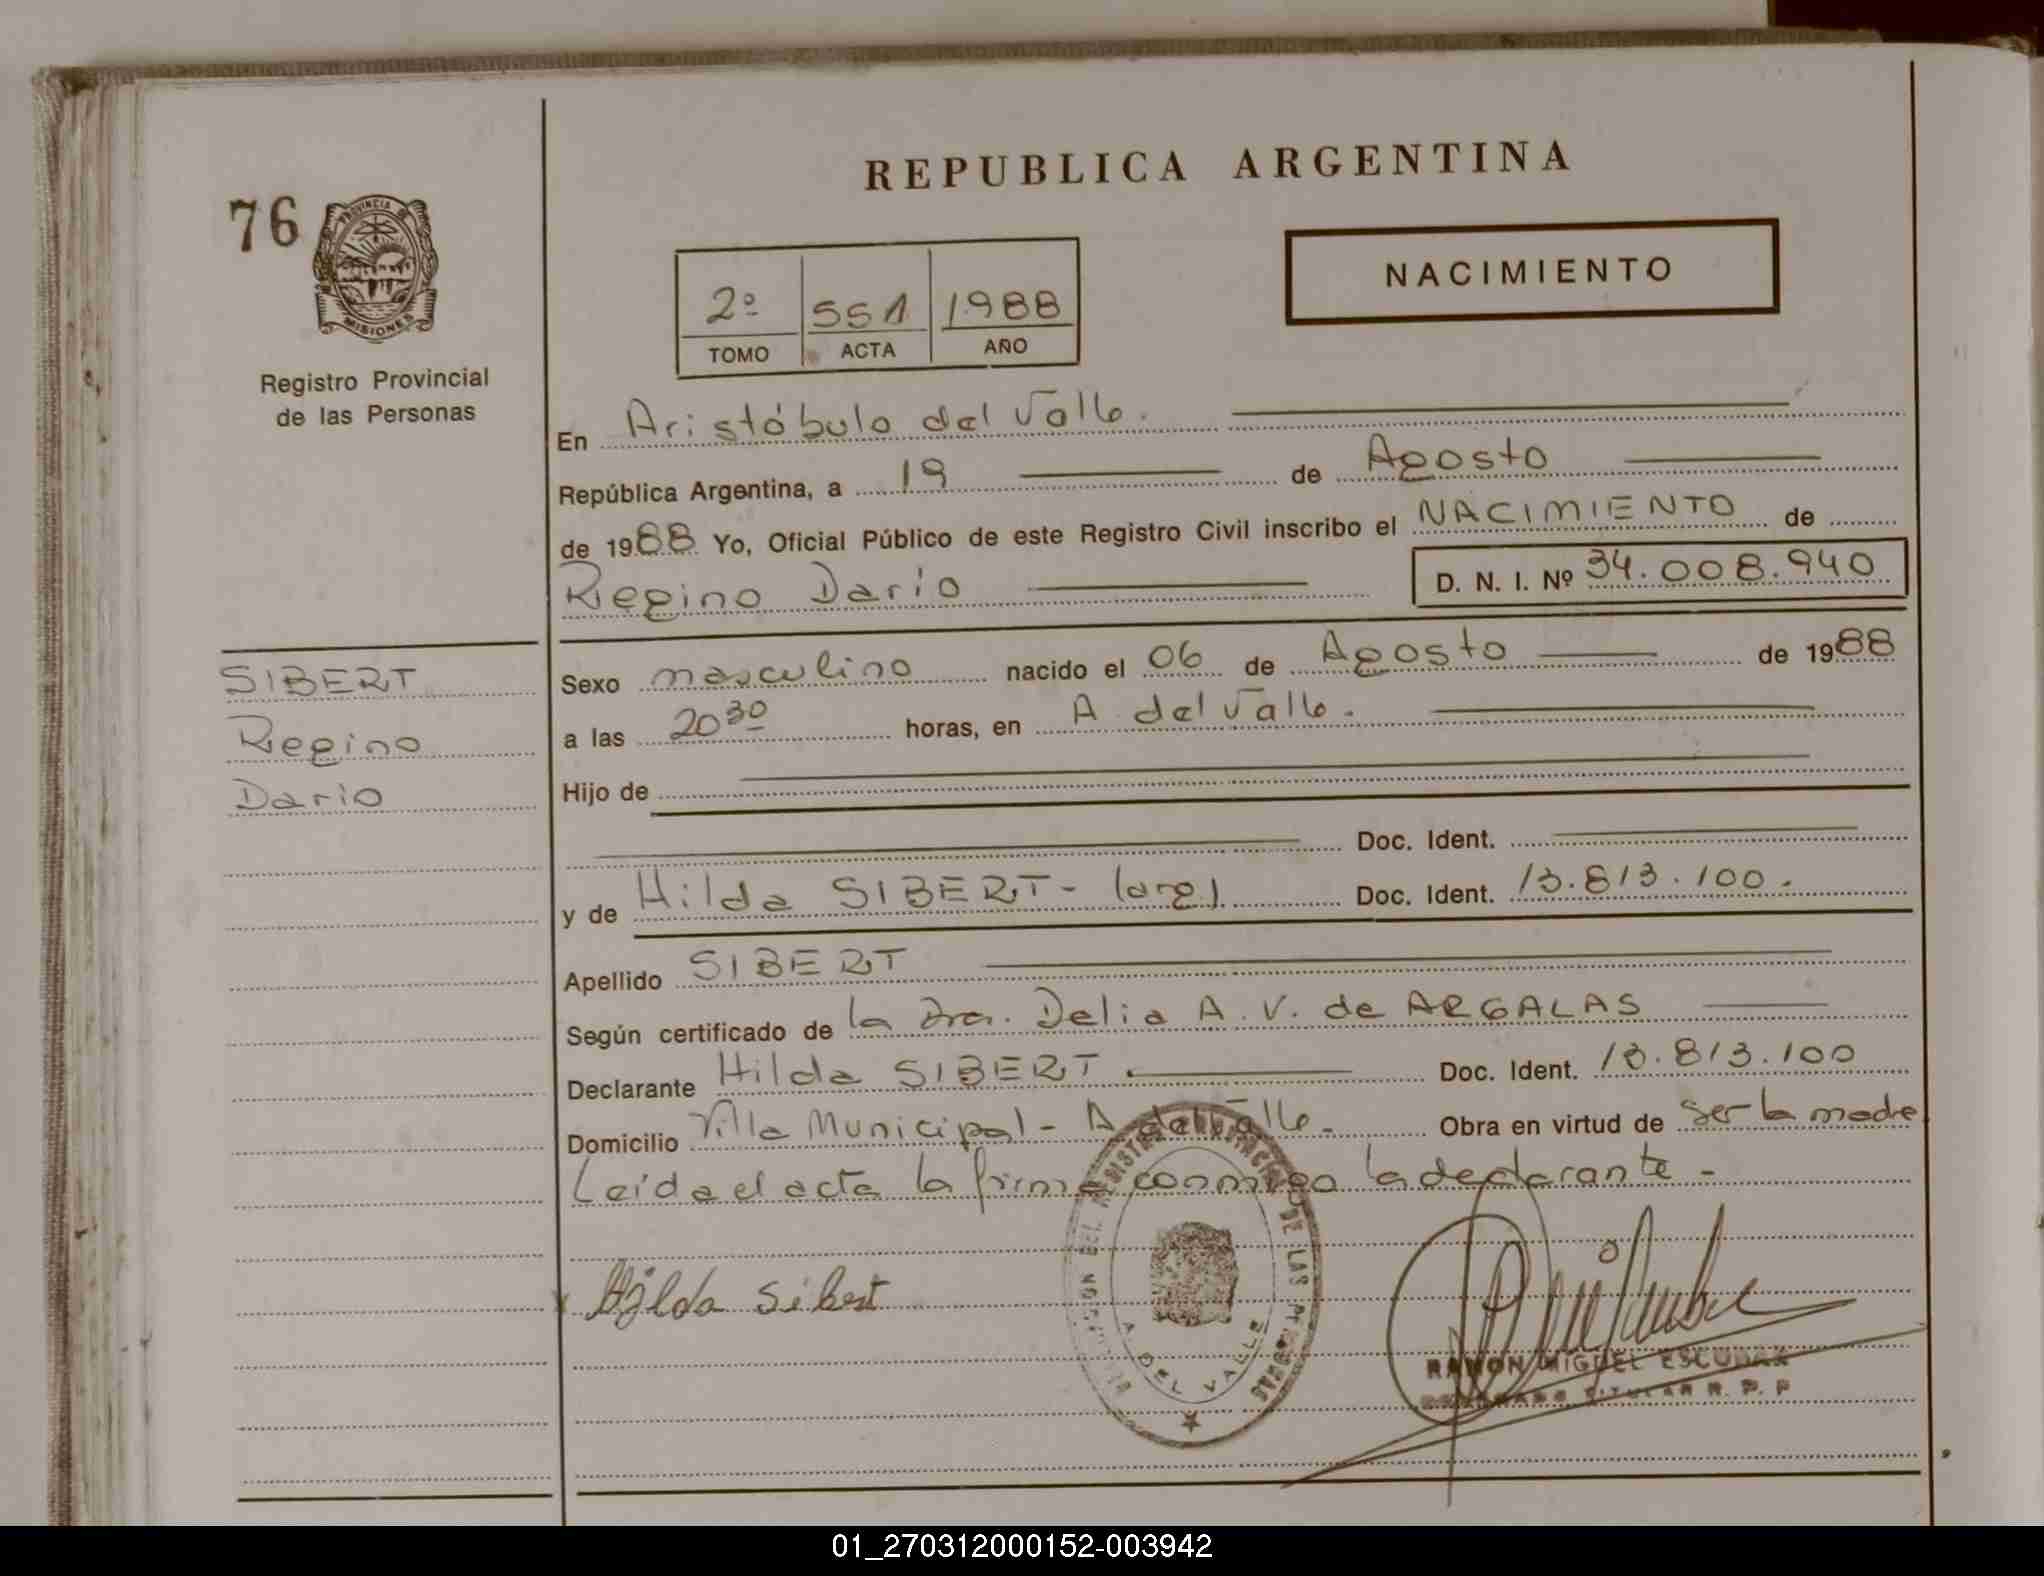 REPUBLICA ARGENTINA
76
PROVINCIA DE
MISIONES
Registro Provincial
de las Personas
NACIMIENTO
2º 551 1988
TOMO ACTA AÑO
En Aristóbulo del Valle.
República Argentina, a 19 de Agosto
de 1988 Yo, Oficial Público de este Registro Civil inscribo el NACIMIENTO de
Regino Dario D. N. I. Nº 34.008.940
SIBERT
Regino
Dario
Sexo masculino nacido el 06 de Agosto de 1988
a las 20 30 horas, en A. del Valle.
Hijo de
Doc. Ident.
y de Hilda SIBERT - (arg) Doc. Ident. 13.813.100.
Apellido SIBERT
Según certificado de la Dra. Delia A. V. de ARGALAS
Declarante Hilda SIBERT. Doc. Ident. 13.813.100
Domicilio Villa Municipal - A. del Valle. Obra en virtud de ser la madre
Leída el acta la firma conmigo la declarante -
Hilda Sibert
DE LAS PERSONAS
A. DEL VALLE
RAMON MIGUEL ESCUBAR
DELEGADO TITULAR R. P. P
01_270312000152-003942